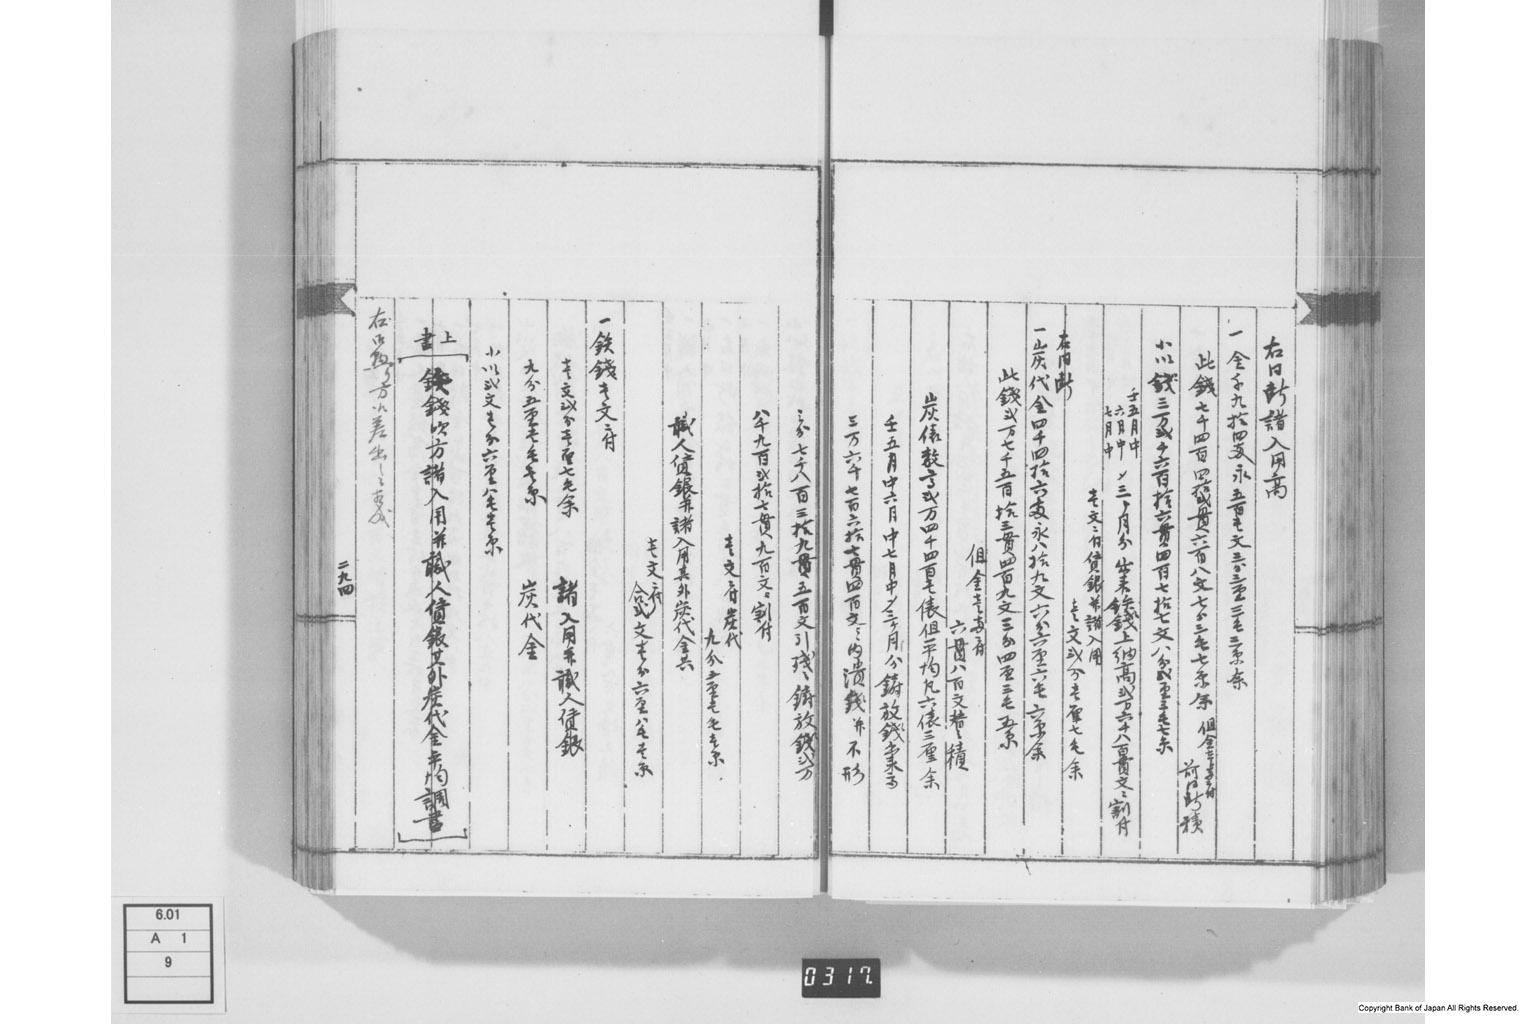 右同断諸入用高
一金千九拾四両永五百七文三分三厘三毛三糸余
此銭七千四百四拾弐貫六百八文七分三毛七糸余 但金壱両ニ付前同断積
小以銭三万弐千六百拾六貫四百七拾七文八分弐厘三毛七糸
壬五月中
六月中
七月中
〆三ヶ月分出来銕銭上納高弐万六千八百貫文ニ割付
壱文ニ付賃銀并諸入用
壱文弐分壱厘七毛余
右同断
一山灰代金四千四拾六両永八拾九文六分六厘六毛六糸余
此銭弐万七千五百拾三貫四百九文三分四厘三毛五糸
但金壱両ニ付
六貫八百文替之積
炭俵数高弐万四千四百七俵但平均凡六俵三厘余
壬五月中六月中七月中〆三ヶ月分鋳放銭出来高
三万六千七百六拾七貫四百文之内潰銭并不形
三分七千八百三拾九貫五百文引残鋳放銭弐万
八千九百弐拾七貫九百文ニ割付
壱文ニ付炭代
九分五厘七毛壱糸
職人賃銀并諸入用其外炭代金共
壱文ニ付
合弐文壱分六厘八毛壱糸
一鉄銭壱文ニ付
壱文弐分壱厘七毛余 諸入用并職人賃銀
九分五厘七毛壱糸 炭代金
小以弐文壱分六厘八毛壱糸
上書
銕銭吹方諸入用并職人賃銀其外炭代金平均調書
二九四
6.01
A 1
9
0317.
Copyright Bank of Japan All Rights Reserved.